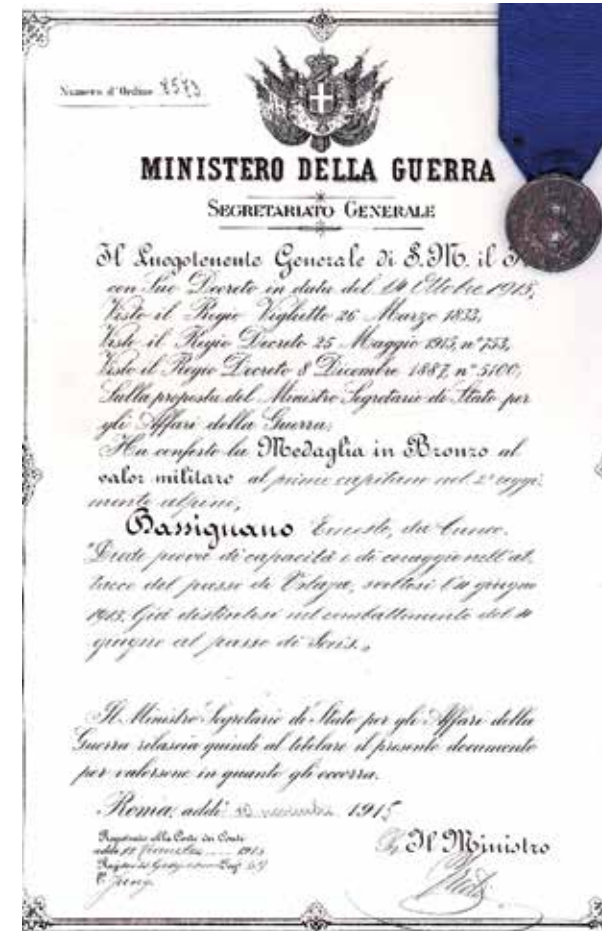 Numero d'Ordine 8573
MINISTERO DELLA GUERRA
SEGRETARIATO GENERALE
Il Luogotenente Generale di S. M. il
con Suo Decreto in data del 14 Ottobre 1915,
Visto il Regio Viglietto 26 Marzo 1833,
Visto il Regio Decreto 25 Maggio 1915, n° 753,
Visto il Regio Decreto 8 Dicembre 1887, n° 5100,
Sulla proposta del Ministro Segretario di Stato per
gli Affari della Guerra;
Ha conferito la Medaglia in Bronzo al
valor militare al primo capitano nel 2° reggi
mento alpini,
Bassignano Ernesto, da Cuneo.
"Diede prova di capacità e di coraggio nell'at
tacco del passo di svoltosi giugno
1915. Già distintosi nel combattimento del
giugno al passo di
Il Ministro Segretario di Stato per gli Affari della
Guerra rilascia quindi al titolare il presente documento
per valersene in quanto gli occorra.
Roma, addì novembre 1915
Registrato alla Corte dei Conti
addì 1915
Il Ministro